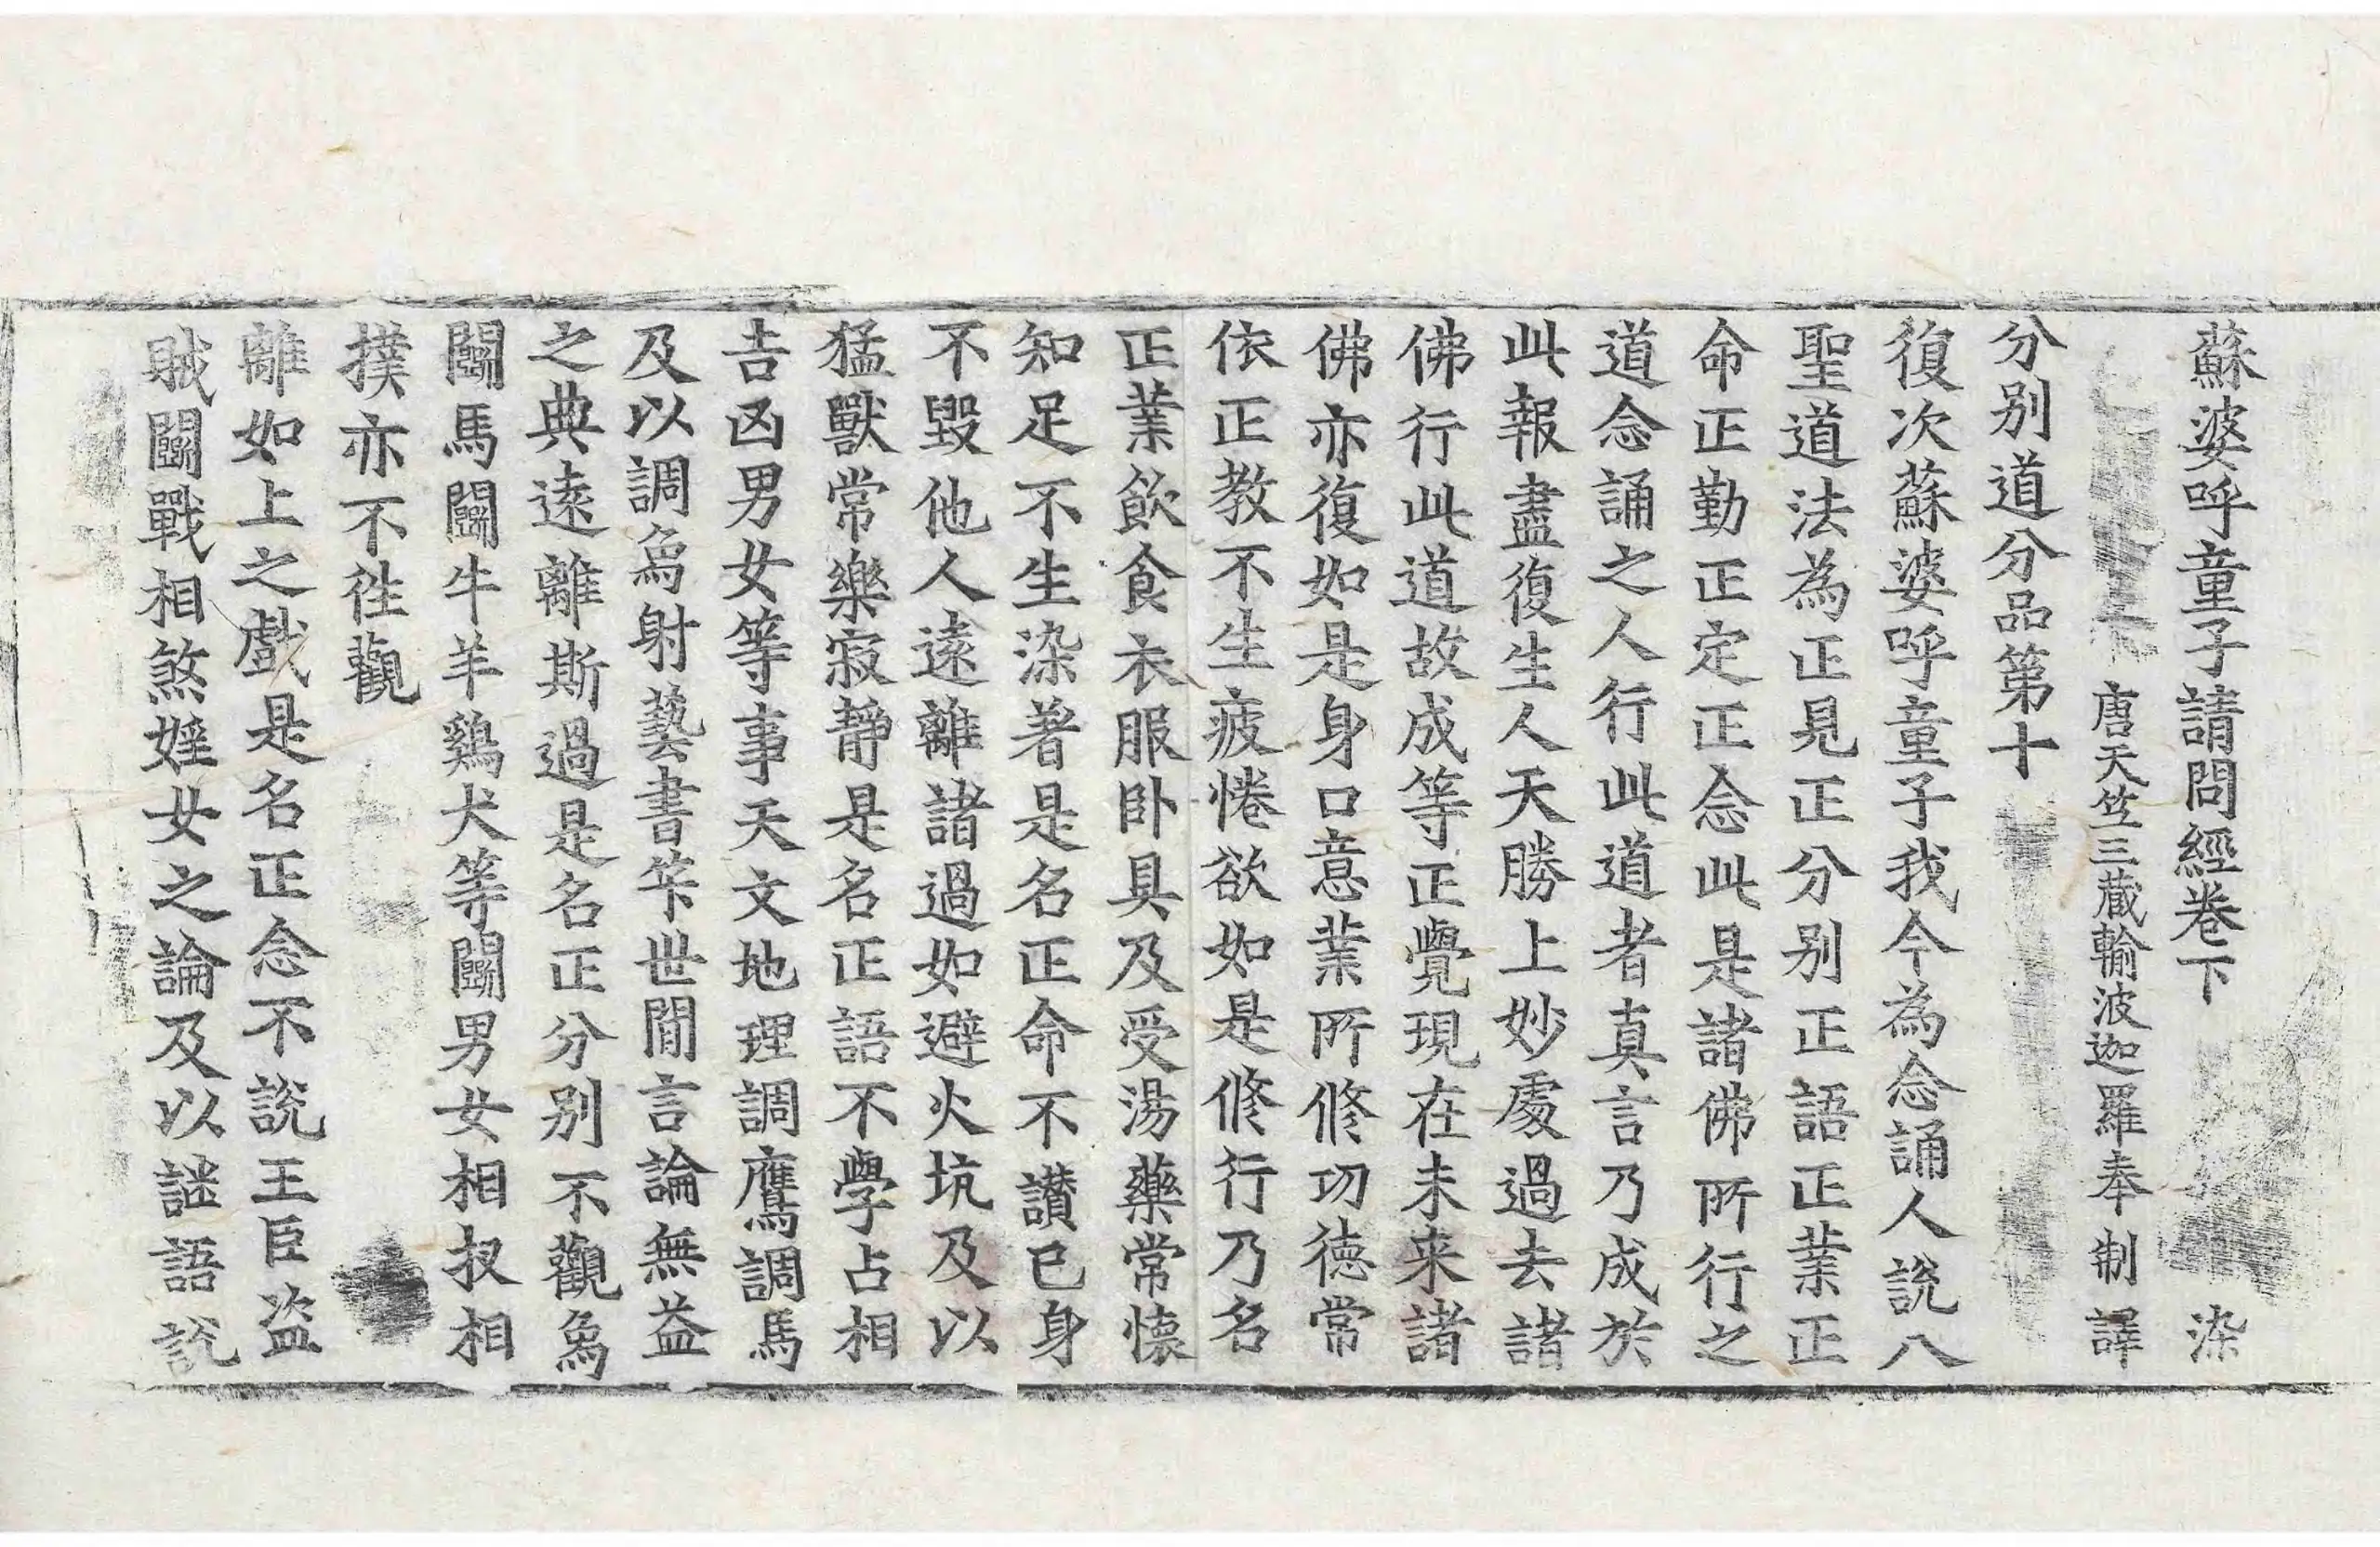 蘇婆呼童子請問經卷下 染
唐天竺三藏輸波迦羅奉制譯
分别道分品第十
復次蘇婆呼童子我今為念誦人說八
聖道法為正見正分别正語正業正
命正勤正定正念此是諸佛所行之
道念誦之人行此道者真言乃成於
此報盡復生人天勝上妙處過去諸
佛行此道故成等正覺現在未来諸
佛亦復如是身口意業所修功德常
依正教不生疲惓欲如是修行乃名
正業飲食衣服卧具及受湯藥常懷
知足不生染著是名正命不讚己身
不毀他人遠離諸過如避火坑及以
猛獸常樂寂静是名正語不學占相
吉凶男女等事天文地理調鷹調馬
及以調象射藝書筭世間言論無益
之典遠離斯過是名正分别不觀象
鬬馬鬬牛羊鷄犬等鬬男女相扠相
撲亦不往觀
離如上之戲是名正念不說王臣盗
賊鬬戰相煞婬女之論及以謎語説